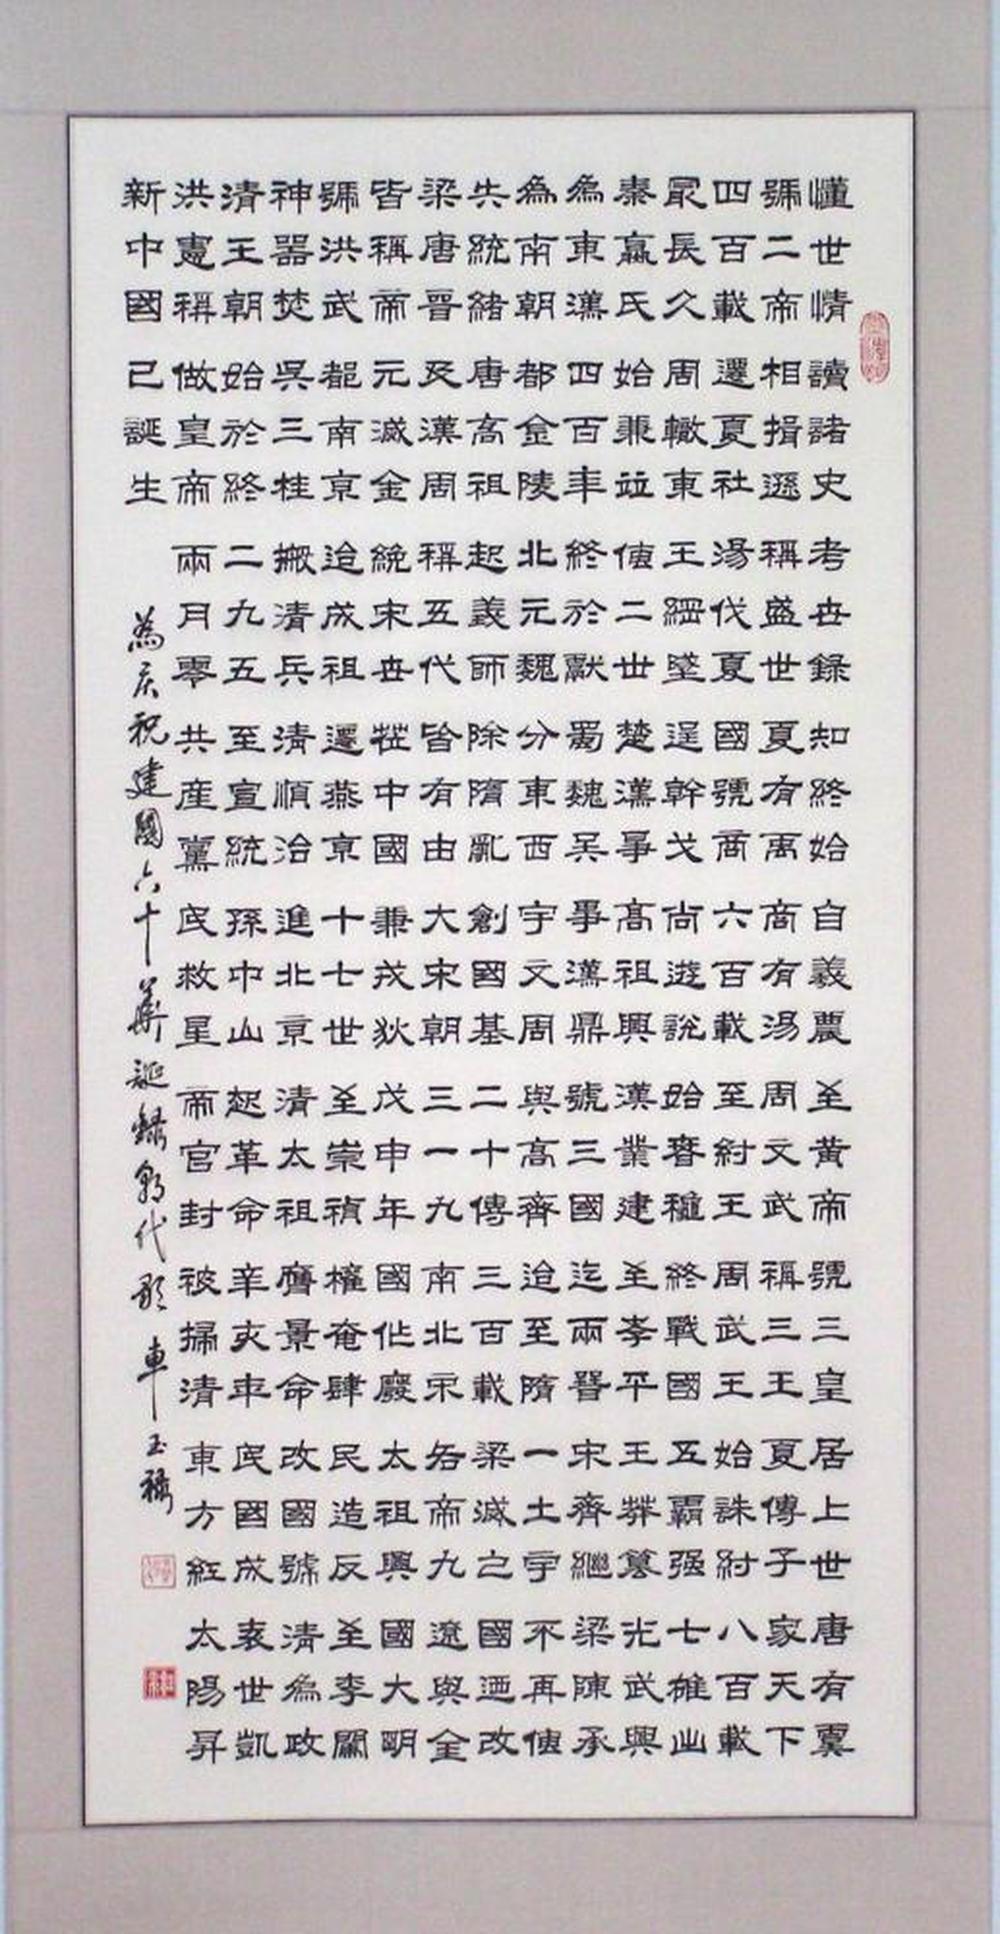 懂世情讀諸史考世錄知終始自羲農至黃帝號三皇居上世唐有虞
號二帝相揖遜稱盛世夏有禹商有湯周文武稱三王夏傳子家天下
四百載遷夏社湯伐夏國號商六百載至紂王周武王始誅紂八百載
最長久周轍東王綱墜逞幹戈尚遊說始春穐終戰國五霸强七雄出
秦嬴氏始兼並傳二世楚漢爭高祖興漢業建至孝平王莽篡光武興
為東漢四百年終於獻蜀魏吳爭漢鼎號三國迄兩晉宋齊繼梁陳承
為南朝都金陵北元魏分東西宇文周與高齊迨至隋一土宇不再傳
失統緒唐高祖起義師除隋亂創國基二十傳三百載梁滅之國迺改
梁唐晉及漢周稱五代皆有由大宋朝三一九南北宗各帝九遼與金
皆稱帝元滅金統宋世蒞中國兼戎狄戊申年國作廢太祖興國大明
號洪武都南京迨成祖遷燕京十七世至崇禎權奄肆民造反至李闖
神器焚吳三桂搬清兵清順治進北京清太祖膺景命改國號清為政
清王朝始於終二九五至宣統孫中山起革命辛亥年民國成袁世凱
洪憲稱做皇帝兩月零共產黨民救星帝官封被掃清東方紅太陽昇
新中國已誕生
為庆祝建國六十華誕錄朝代歌 車玉祿